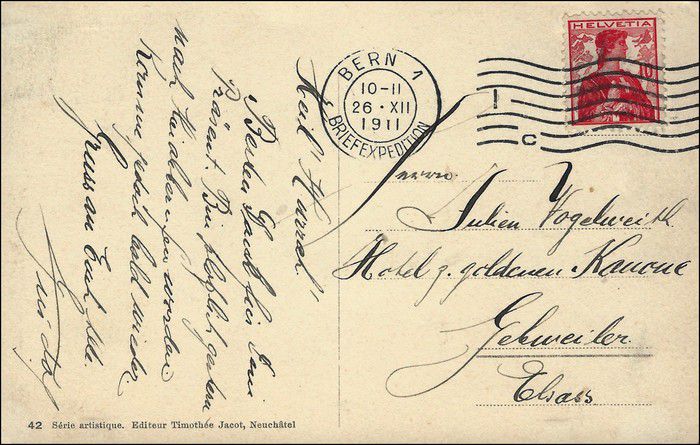 HELVETIA
10
BERN 1
10-11
26.XII
1911
BRIEFEXPEDITION
C
Herrn
Julien Vogelweith
Hotel z. goldenen Kanone
Gebweiler
Elsass
Heil Hurrah!
Besten Dank für Dein
Präsent. Bin plözlich gestern
nach hier worden
Komme jedoch bald wieder
Gruss an Euch Alle.
42 Série artistique. Editeur Timothée Jacot, Neuchâtel